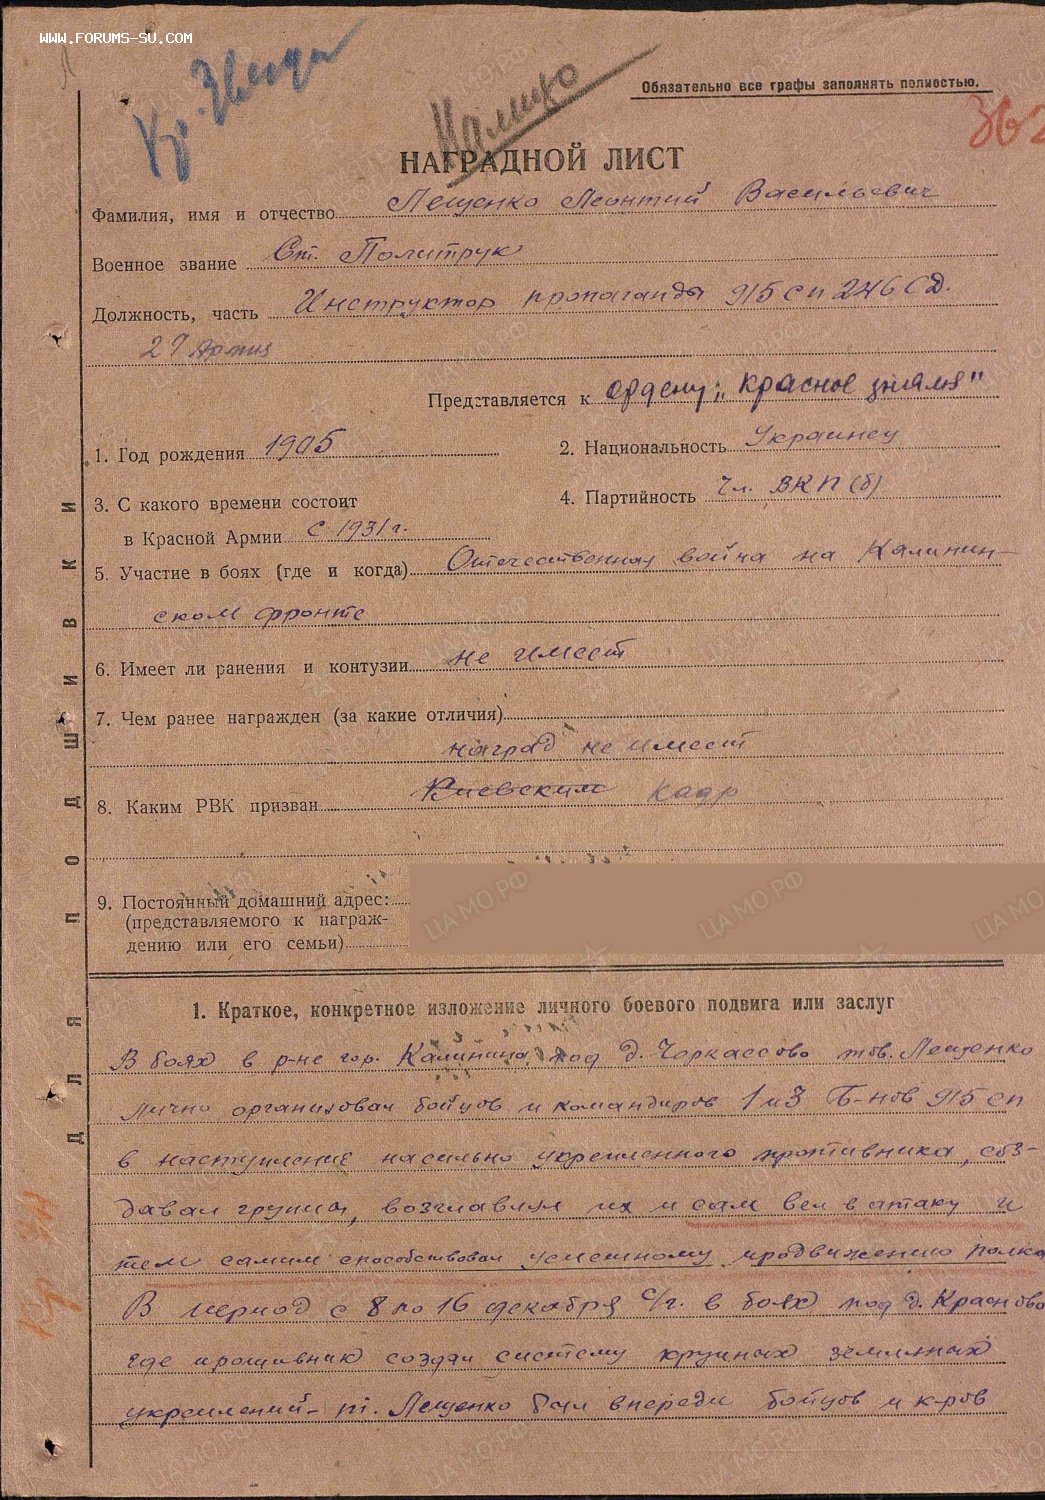 www.forums-su.com
Кр. Звезда
Обязательно все графы заполнять полностью.
362
НАГРАДНОЙ ЛИСТ
Фамилия, имя и отчество Лещенко Леонтий Васильевич
Военное звание Ст. Политрук
Должность, часть Инструктор пропаганды 915 сп 246 СД.
29 Армия
Представляется к ордену „Красное знамя"
1. Год рождения 1905
2. Национальность Украинец
3. С какого времени состоит
в Красной Армии с 1931 г.
4. Партийность Чл. ВКП(б)
5. Участие в боях (где и когда) Отечественная война на Калинин-
ском фронте
6. Имеет ли ранения и контузии не имеет
7. Чем ранее награжден (за какие отличия)
наград не имеет
8. Каким РВК призван Киевским Кадр
9. Постоянный домашний адрес:
(представляемого к награж-
дению или его семьи)
ДЛЯ ПОДШИВКИ
1. Краткое, конкретное изложение личного боевого подвига или заслуг
В боях в р-не гор. Калинина, под д. Черкассово тов. Лещенко
лично организовал бойцов и командиров 1 и 3 Б-нов 915 сп
в наступление на сильно укрепленного противника, соз-
давал группы, возглавлял их и сам вел в атаку и
тем самим способствовал успешному продвижению полка
В период с 8 по 16 декабря с/г. в боях под д. Красново
где противник создал систему крупных земляных
укреплений - т. Лещенко был впереди бойцов и к-ров
Кр Зн
ЦА МО РФ